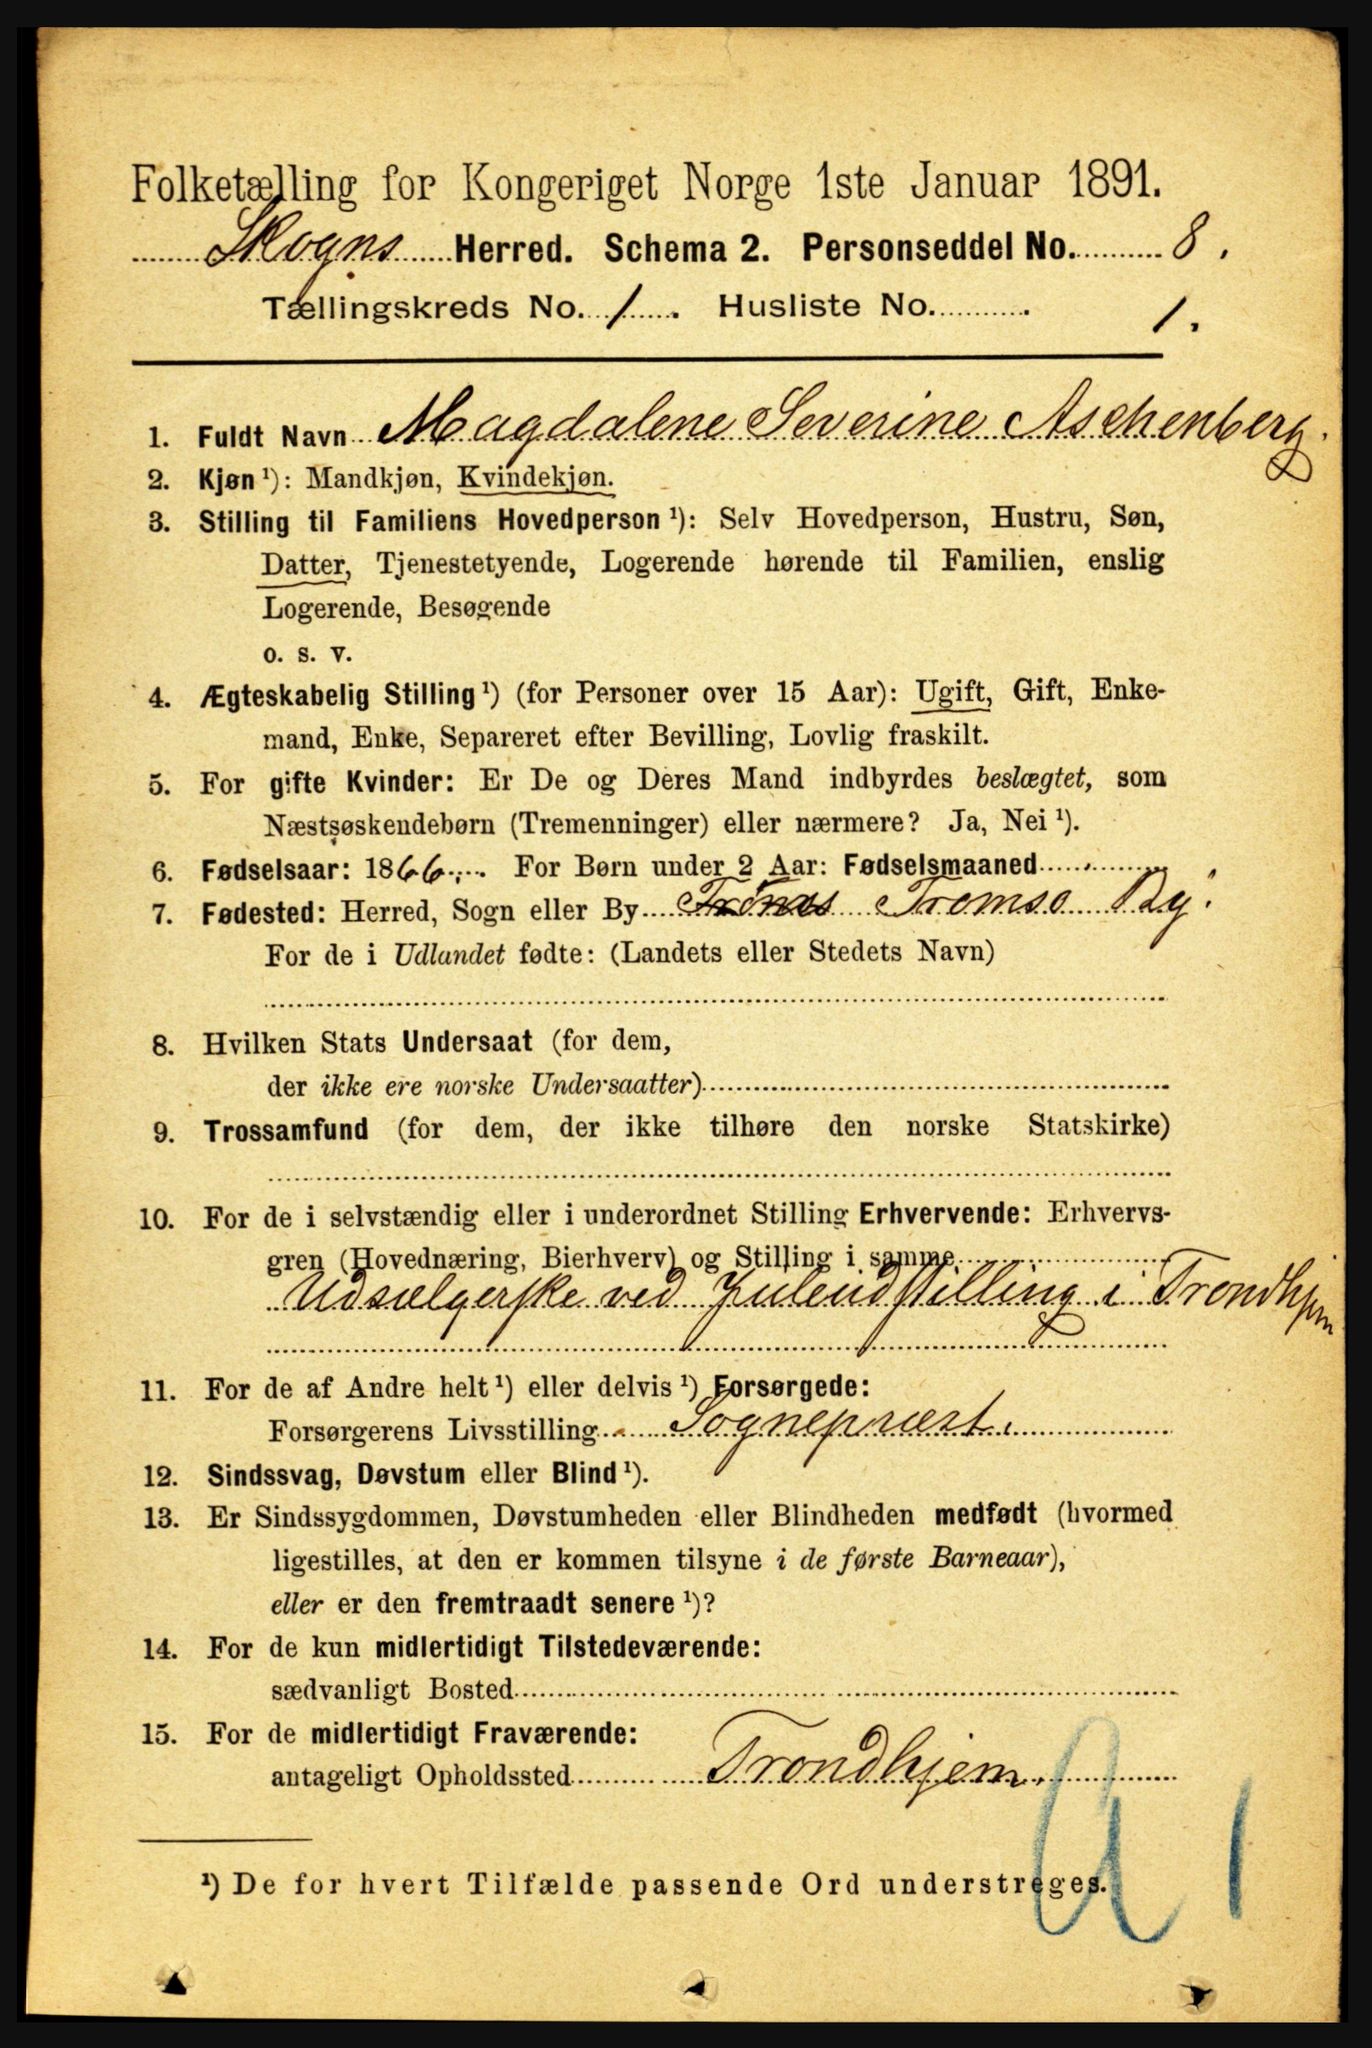 Folketælling for Kongeriget Norge 1ste Januar 1891.
Skogns Herred. Schema 2. Personseddel No. 8.
Tællingskreds No. 1. Husliste No. 1.
1. Fuldt Navn Magdalene Severine Aschenberg.
2. Kjøn ¹): Mandkjøn, Kvindekjøn.
3. Stilling til Familiens Hovedperson ¹): Selv Hovedperson, Hustru, Søn,
Datter, Tjenestetyende, Logerende hørende til Familien, enslig
Logerende, Besøgende
o. s. v.
4. Ægteskabelig Stilling ¹) (for Personer over 15 Aar): Ugift, Gift, Enke-
mand, Enke, Separeret efter Bevilling, Lovlig fraskilt.
5. For gifte Kvinder: Er De og Deres Mand indbyrdes beslægtet, som
Næstsøskendebørn (Tremenninger) eller nærmere? Ja, Nei ¹).
6. Fødselsaar: 1866. For Børn under 2 Aar: Fødselsmaaned
7. Fødested: Herred, Sogn eller By Tromsø By.
For de i Udlandet fødte: (Landets eller Stedets Navn)
8. Hvilken Stats Undersaat (for dem,
der ikke ere norske Undersaatter)
9. Trossamfund (for dem, der ikke tilhøre den norske Statskirke)
10. For de i selvstændig eller i underordnet Stilling Erhvervende: Erhvervs-
gren (Hovednæring, Bierhverv) og Stilling i samme
Udsælgerske ved Juleudstilling i Trondhjem
11. For de af Andre helt ¹) eller delvis ¹) Forsørgede:
Forsørgerens Livsstilling Sognepræst.
12. Sindssvag, Døvstum eller Blind ¹).
13. Er Sindssygdommen, Døvstumheden eller Blindheden medfødt (hvormed
ligestilles, at den er kommen tilsyne i de første Barneaar),
eller er den fremtraadt senere ¹)?
14. For de kun midlertidigt Tilstedeværende:
sædvanligt Bosted
15. For de midlertidigt Fraværende:
antageligt Opholdssted Trondhjem.
¹) De for hvert Tilfælde passende Ord understreges.
a 1